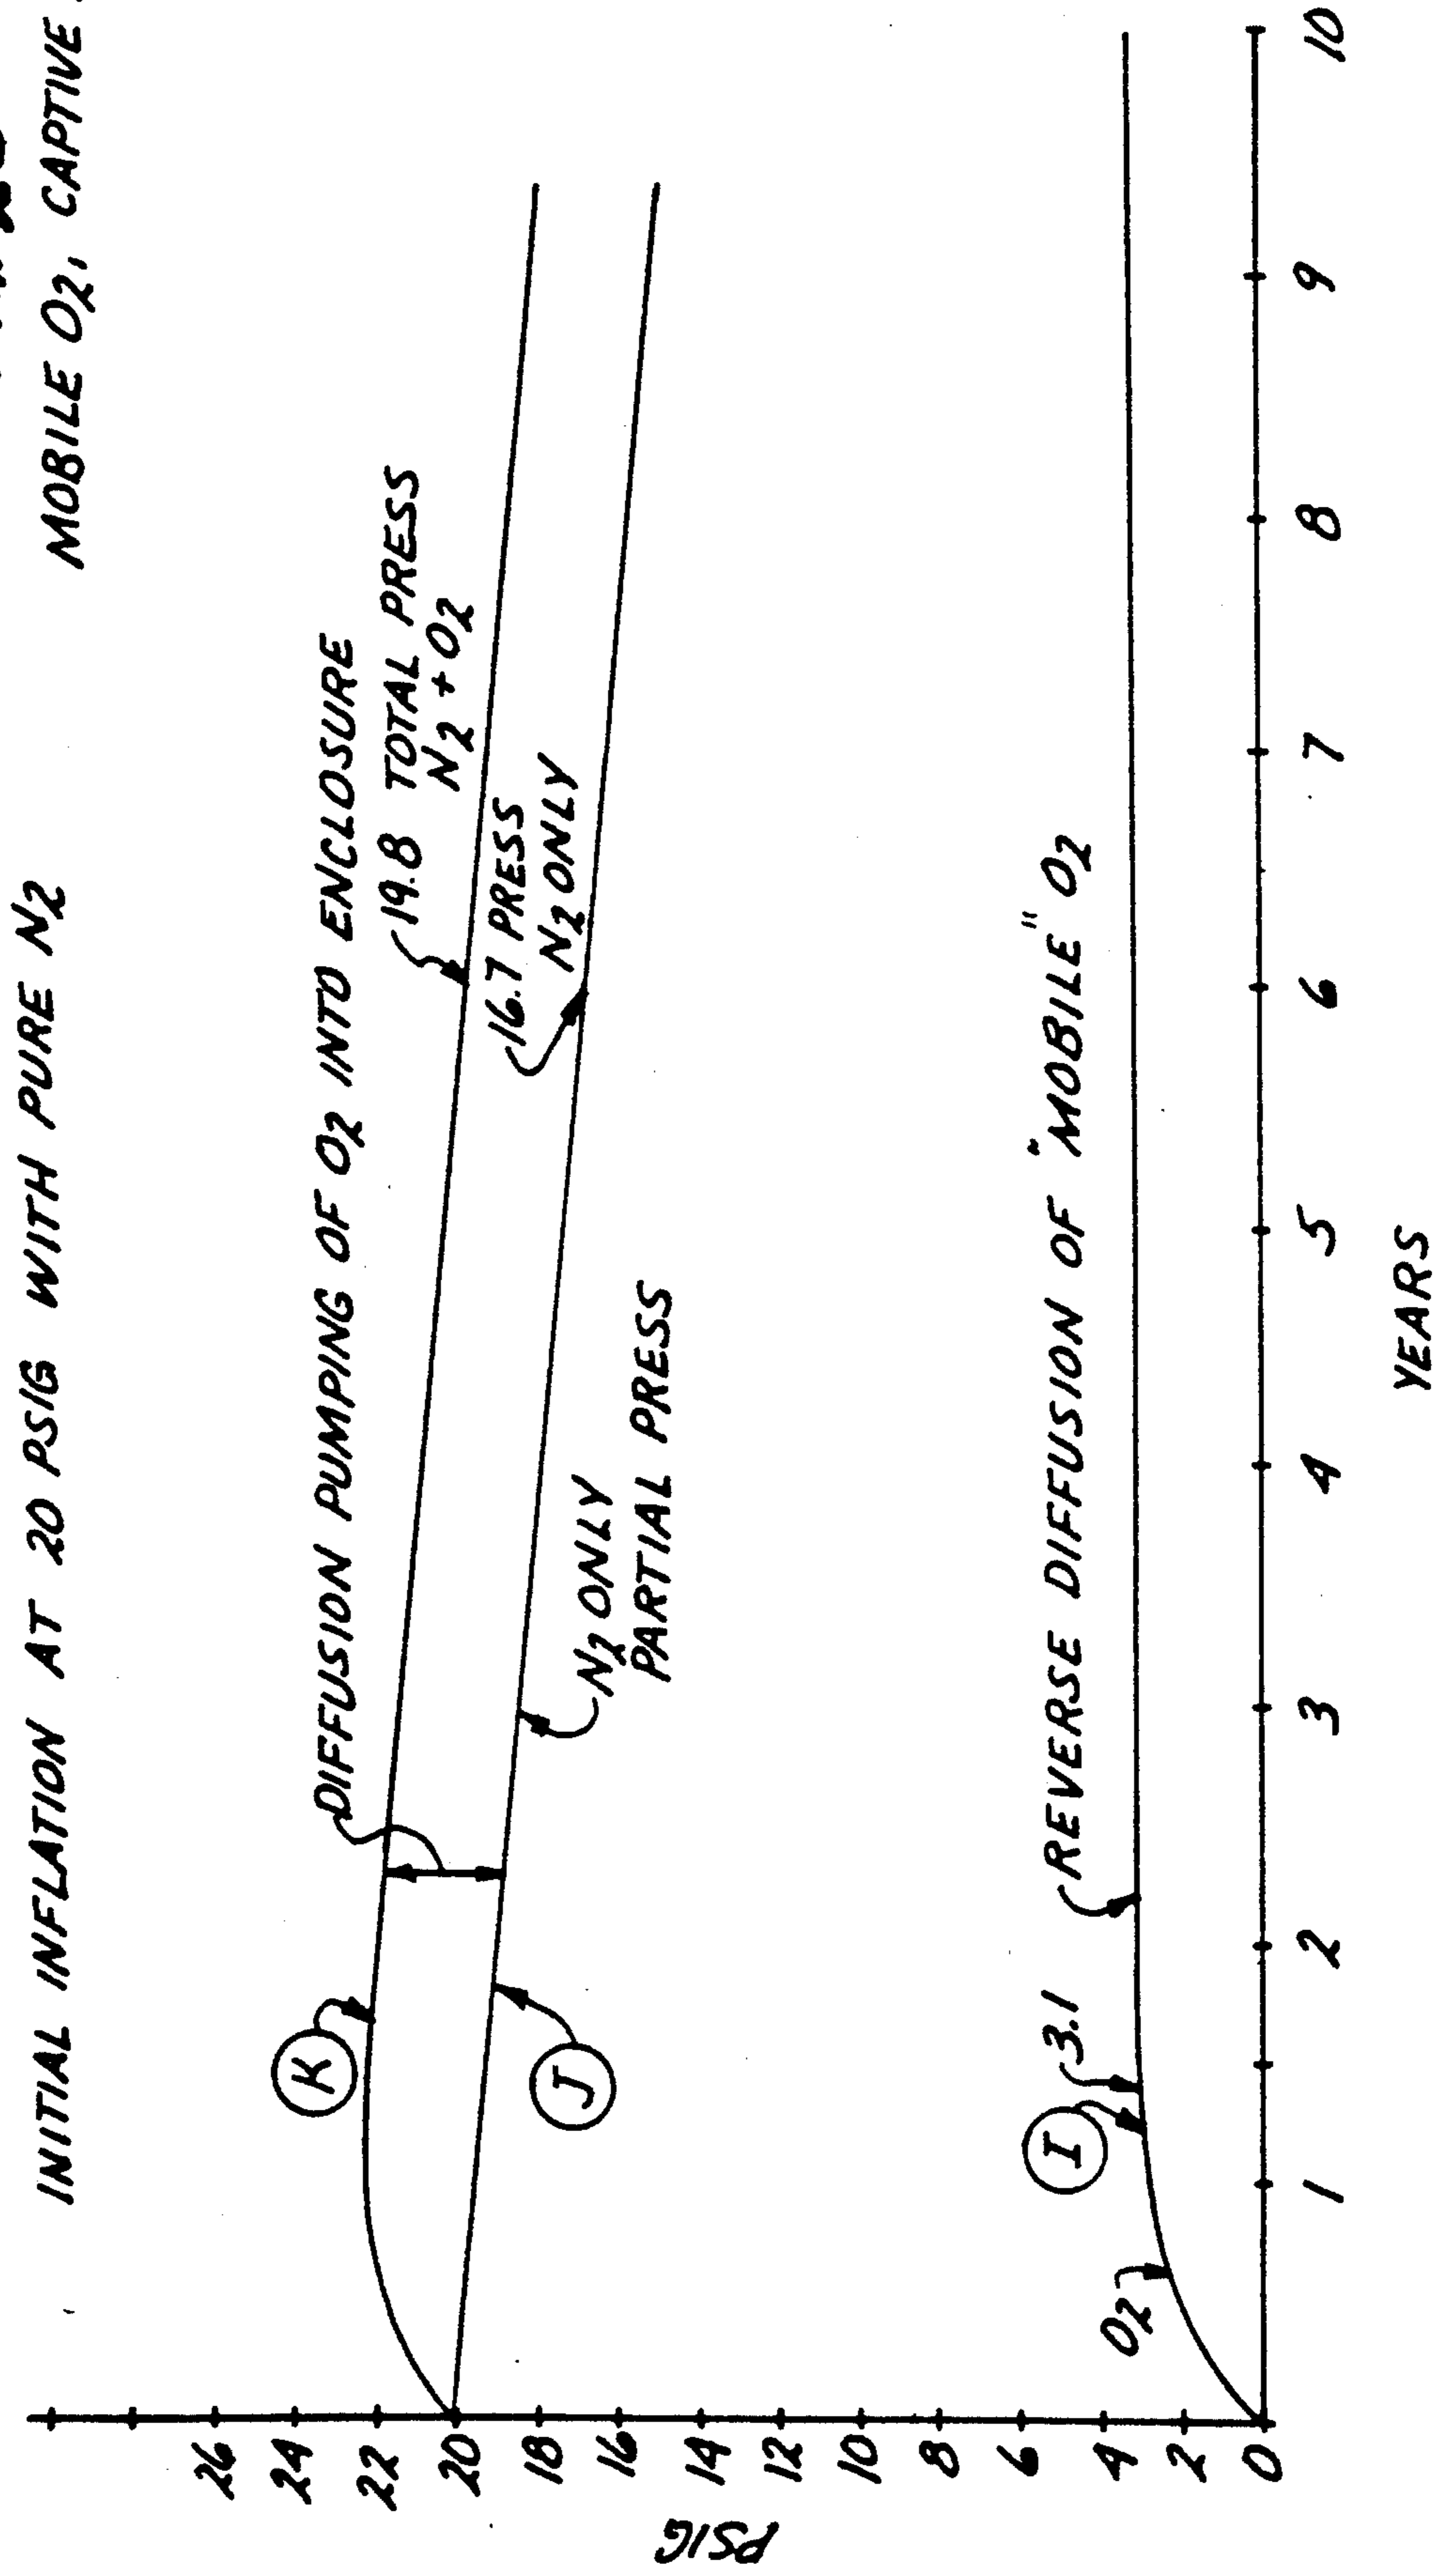 MOBILE O2, CAPTIVE
INITIAL INFLATION AT 20 PSIG WITH PURE N2
DIFFUSION PUMPING OF O2 INTO ENCLOSURE
19.8 TOTAL PRESS
N2 + O2
16.7 PRESS
N2 ONLY
K
J
N2 ONLY
PARTIAL PRESS
REVERSE DIFFUSION OF "MOBILE" O2
I
3.1
O2
PSIG
26
24
22
20
18
16
14
12
10
8
6
4
2
0
1
2
3
4
5
6
7
8
9
10
YEARS